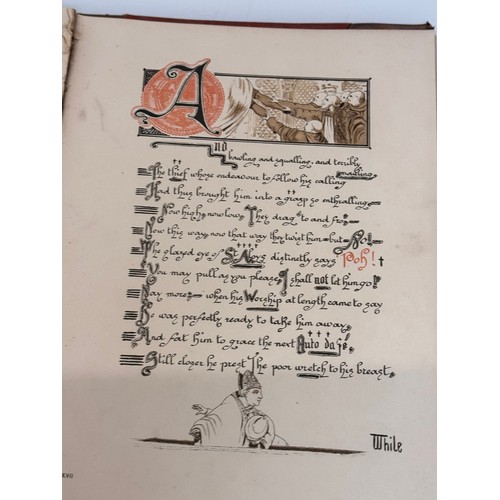 And
bawling and squalling, and terribly mauling
The thief whose endeavour to follow his calling
Had thus brought him into a grasp so enthralling—
Now high, now low, They drag "to and fro"—
Now this way, now that way they twist him—but—No!—
The glazed eye of St. Aloys distinctly says Poh!
You may pull as you please, I shall not let him go!
Nay more;—when his Worship at length came to say
He was perfectly ready to take him away,
And fat him to grace the next Auto da fé,
Still closer he prest The poor wretch to his breast,
While
XVII